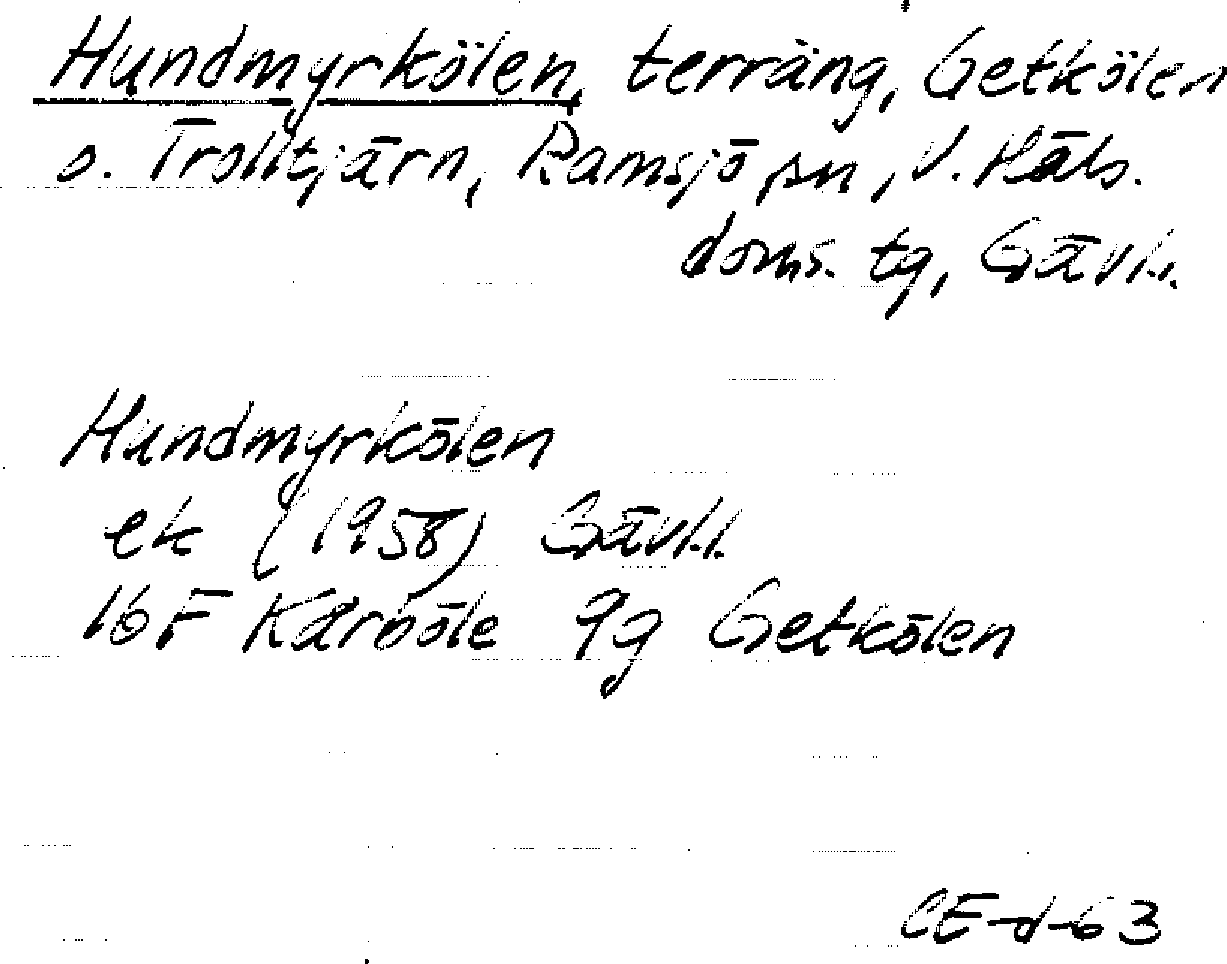 Hundmyrkölen, terräng, Getkölen
o. Trolltjärn, Ramsjö sn, V. Häls.
doms. tg, Gävl.l.
Hundmyrkölen
ek (1958) Gävl.l.
16F Kårböle 9g Getkölen
CE-d-63